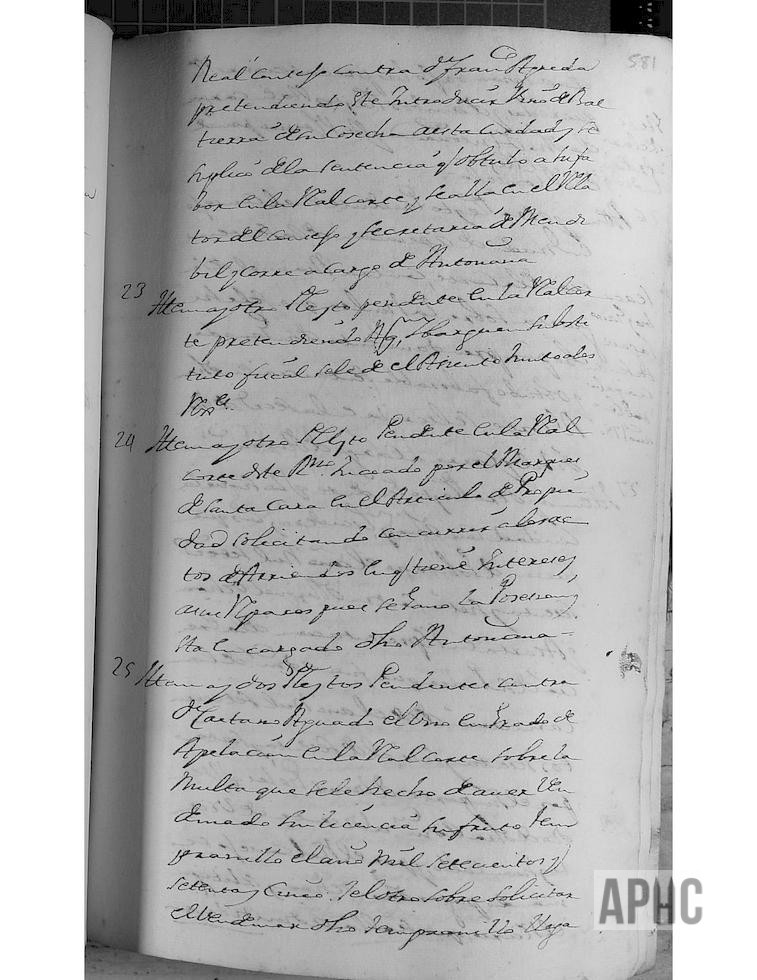 581
Real Consejo contra Dn Franco Agreda
pretendiendo este Introducir Vino de Bal
tierra de su Cosecha a esta ciudad y se
suplicó de la sentencia q obtubo a su fa
bor en la Real corte, y se alla en el Rela
tor del consejo y secretaria de Mendi
bil y corre a cargo de Antoñana
23 Item ay otro Pleyto pendente en la Real cor
te pretendiendo substi
tuto fiscal se le dé el Asiento Junto a los
24 Item ay otro Pleyto Pendente en la Real
corte de este Rno incoado por el Marques
de Santa Cara en el Articulo de Propie
dad solicitando concurrir a los ac
tos de Arriendos en q tiene Intereses
a sus pues se Gano la Posesion y
sta encargado dho Antoñana
25 Item ay dos Pleytos Pendentes contra
Dn Caetano Aguado el Uno en Grado de
Apelacion en la Real corte sobre la
Multa que se le hecho de aver Ven
demado sin licencia su fruto tem
pranillo el año Mil Setecientos y
setenta y Cinco. Y el otro sobre solicitar
el Vendemar dho tempranillo
APHC